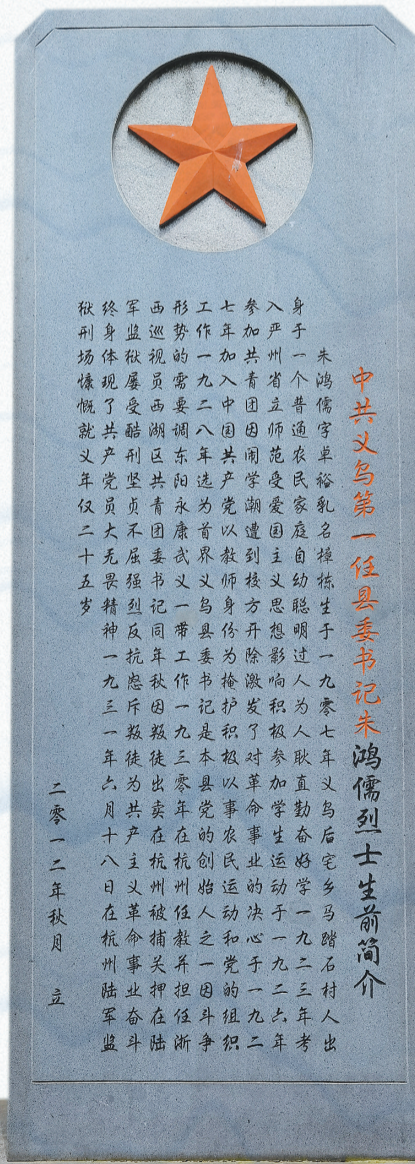 中共义乌第一任县委书记朱鸿儒烈士生前简介
朱鸿儒字卓裕乳名樟栋生于一九零七年义乌后宅乡马踏石村人出
身于一个普通农民家庭自幼聪明过人为人耿直勤奋好学一九二三年考
入严州省立师范受爱国主义思想影响积极参加学生运动于一九二六年
参加共青团因闹学潮遭到校方开除激发了对革命事业的决心于一九二
七年加入中国共产党以教师身份为掩护积极以事农民运动和党的组织
工作一九二八年选为首界义乌县委书记是本县党的创始人之一因斗争
形势的需要调东阳永康武义一带工作一九三零年在杭州任教并担任浙
西巡视员西湖区共青团委书记同年秋因叛徒出卖在杭州被捕关押在陆
军监狱屡受酷刑坚贞不屈强烈反抗怒斥叛徒为共产主义革命事业奋斗
终身体现了共产党员大无畏精神一九三一年六月十八日在杭州陆军监
狱刑场慷慨就义年仅二十五岁
二零一二年秋月 立